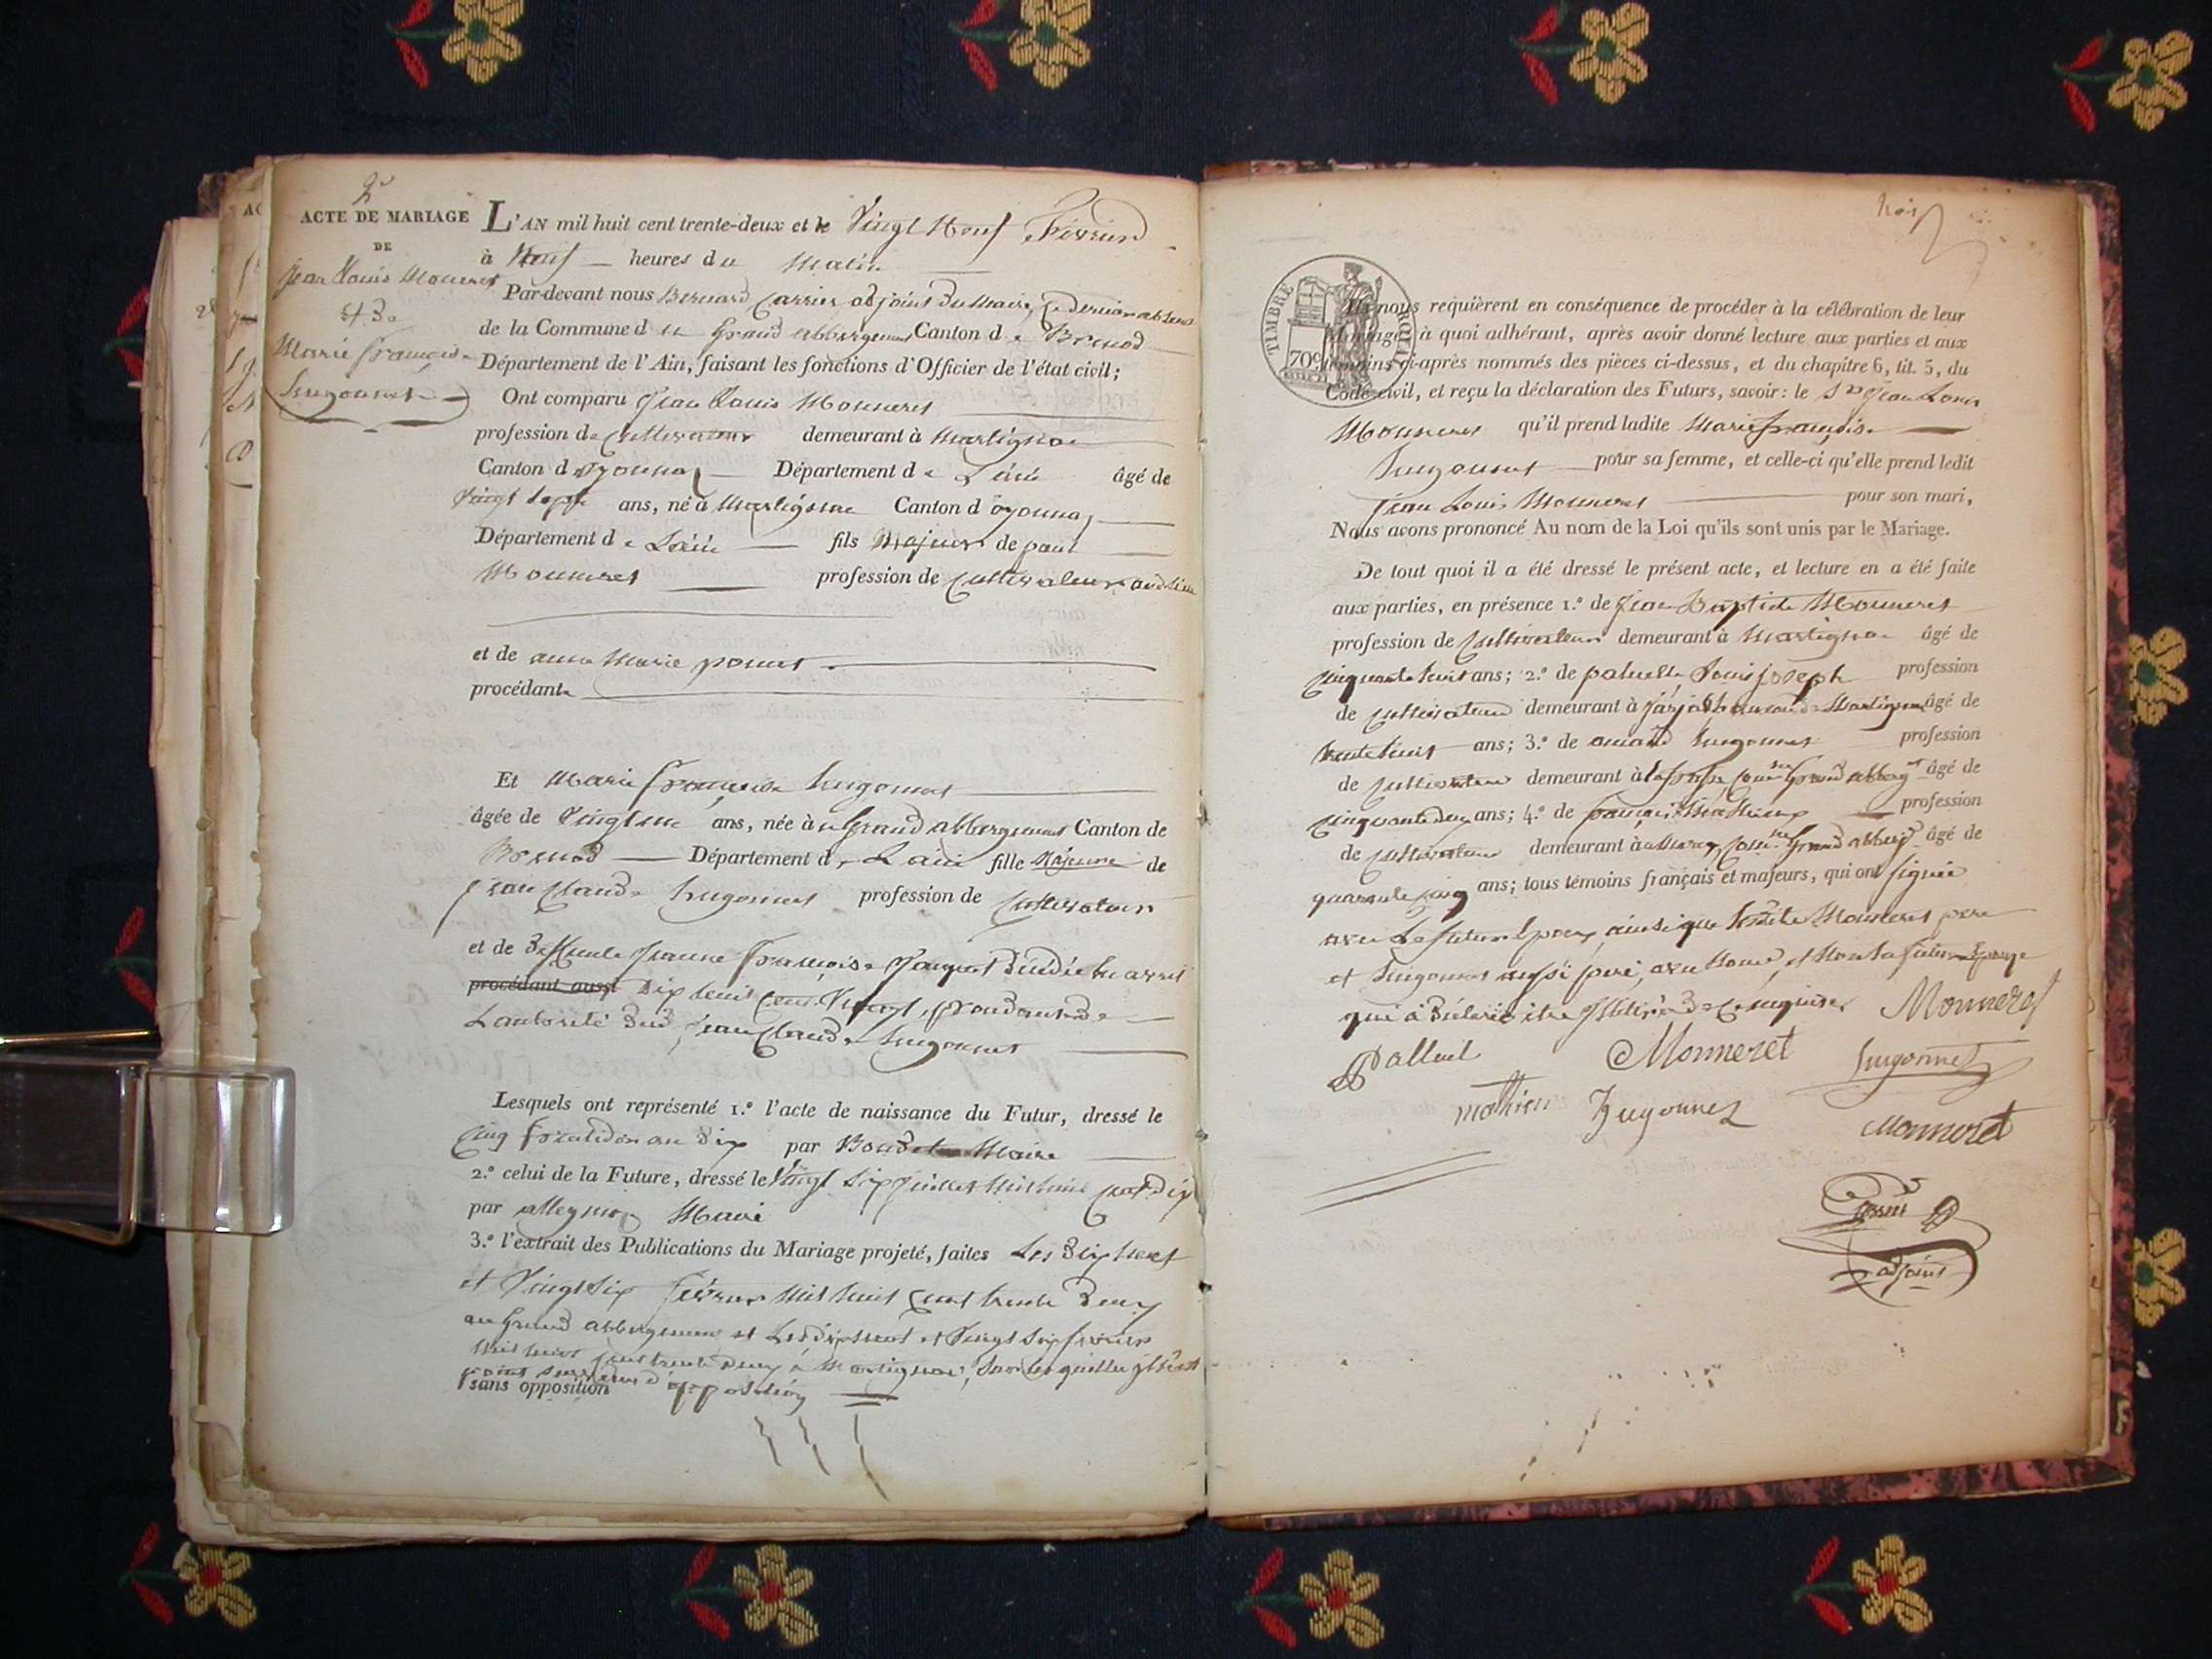 2e
ACTE DE MARIAGE
DE
Jean Louis Monneret
et de
Marie françoise
hugonnet
L'AN mil huit cent trente-deux et le Vingt Neuf Février
à Neuf heures du Matin
Par-devant nous Bernard Carrier adjoint du maire, ce dernier absent
de la Commune du Grand abbergement Canton de Brenod
Département de l'Ain, faisant les fonctions d'Officier de l'état civil;
Ont comparu Jean Louis Monneret
profession de Cultivateur demeurant à Martignat
Canton d'oyonnax Département de L'ain âgé de
Vingt Sept ans, né à Martignat Canton d'oyonnax
Département de L'ain fils Majeur de paul
Monneret profession de Cultivateur audit lieu
et de anne Marie poncet
procédant
Et Marie françoise hugonnet
âgée de Vingt un ans, née au Grand abbergement Canton de
Brenod Département de L'ain fille Majeure de
jean Claude hugonnet profession de Cultivateur
et de deffunte Jeanne françoise décédée en avril
procédant aussi dix huit Cent Vingt, procédant de
L'autorité dud. jean Claude hugonnet
Lesquels ont représenté 1.º l'acte de naissance du Futur, dressé le
Cinq an dix par Maire
2.º celui de la Future, dressé le Vingt Six juillet Mil huit Cent dix
par Maire
3.º l'extrait des Publications du Mariage projeté, faites Les dix Neuf
et Vingt Six février Mil huit Cent trente deux
au Grand abbergement et Les dix Neuf et Vingt Six février
Mil huit Cent trente deux à Martignat, Sur lesquelles il n'est
point survenu d'opposition
sans opposition
trois
TIMBRE ROYAL
70c
Ils nous requièrent en conséquence de procéder à la célébration de leur
Mariage, à quoi adhérant, après avoir donné lecture aux parties et aux
témoins ci-après nommés des pièces ci-dessus, et du chapitre 6, tit. 5, du
Code civil, et reçu la déclaration des Futurs, savoir: le Sr Jean Louis
Monneret qu'il prend ladite Marie françoise
hugonnet pour sa femme, et celle-ci qu'elle prend ledit
Jean Louis Monneret pour son mari,
Nous avons prononcé Au nom de la Loi qu'ils sont unis par le Mariage.
De tout quoi il a été dressé le présent acte, et lecture en a été faite
aux parties, en présence 1.º de Jean Baptiste Monneret
profession de Cultivateur demeurant à Martignat âgé de
Cinquante huit ans; 2.º de Louis joseph profession
de Cultivateur demeurant à Martignat âgé de
trente huit ans; 3.º de amand hugonnet profession
de Cultivateur demeurant à Comne Grand abbergt âgé de
Cinquante deux ans; 4.º de françois Mathieu profession
de Cultivateur demeurant à Comne Grand abbergt âgé de
quarante cinq ans; tous témoins français et majeurs, qui ont signé
avec Le futur Epoux, ainsi que Monneret pere
et hugonnet aussi pere, avec Nous, et Non La future Epouse
qui a déclaré être illitéré de ce enquise
Monneret
Palluel Monneret hugonnet
mathieu hugonnet Monneret
Carrier
adjoint